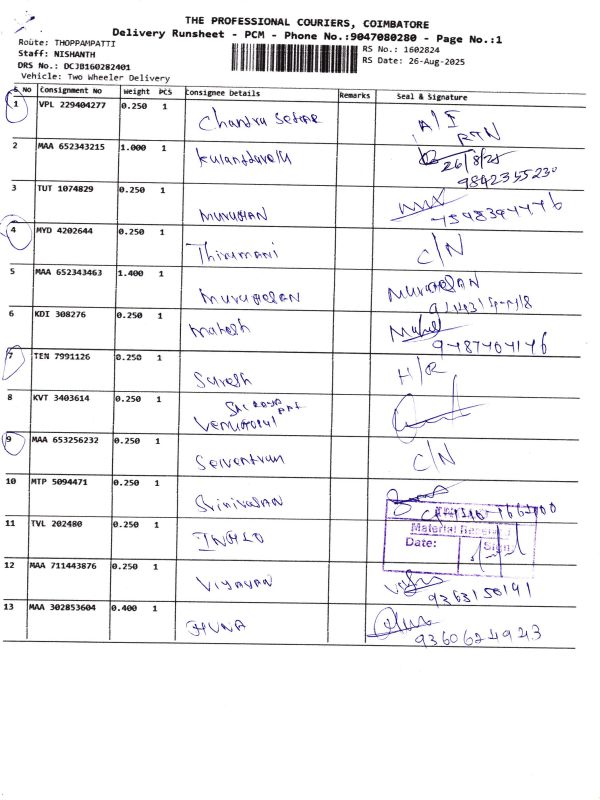 THE PROFESSIONAL COURIERS, COIMBATORE
Delivery Runsheet - PCM - Phone No.:9047080280 - Page No.:1
Route: THOPPAMPATTI
Staff: NISHANTH
DRS No.: DCJB160282401
Vehicle: Two Wheeler Delivery
RS No.: 1602824
RS Date: 26-Aug-2025
S No Consignment No Weight PCS Consignee Details Remarks Seal & Signature
1 VPL 229404277 0.250 1
A/I
RTN
2 MAA 652343215 1.000 1
26/8/25
3 TUT 1074829 0.250 1 MURUGAN
4 MYD 4202644 0.250 1 Thirumani C/N
5 MAA 652343463 1.400 1 Murugesan Murugesan
6 KDI 308276 0.250 1 Mahesh
7 TEN 7991126 0.250 1 Suresh H/R
8 KVT 3403614 0.250 1
9 MAA 653256232 0.250 1 C/N
10 MTP 5094471 0.250 1 Srinivasan
11 TVL 202480 0.250 1
Material
Date: Sign
12 MAA 711443876 0.250 1 Vijayan
9363150141
13 MAA 302853604 0.400 1
9360624943